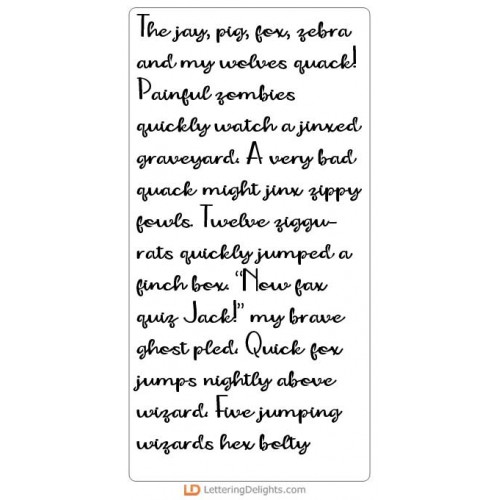 The jay, pig, fox, zebra
and my wolves quack!
Painful zombies
quickly watch a jinxed
graveyard. A very bad
quack might jinx zippy
fowls. Twelve ziggu-
rats quickly jumped a
finch box. "Now fax
quiz Jack!" my brave
ghost pled. Quick fox
jumps nightly above
wizard. Five jumping
wizards hex bolty
LD LetteringDelights.com